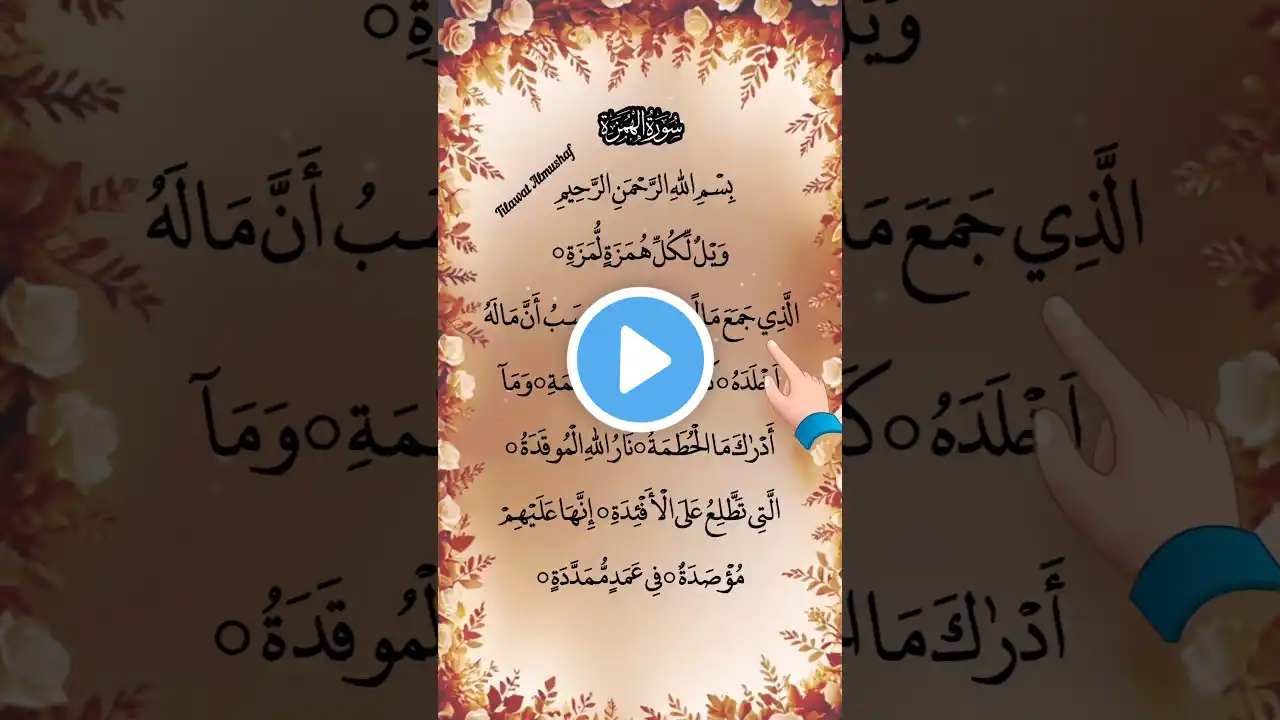 سُورَةُ الْهُمَزَةِ
Tilawat Almushaf
بِسْمِ اللهِ الرَّحْمَنِ الرَّحِيمِ
وَيْلٌ لِّكُلِّ هُمَزَةٍ لُّمَزَةِ ○
الَّذِي جَمَعَ مَالًا سَبُ أَنَّ مَالَهُ
أَخْلَدَهُ ○ كَ مَةِ ○ وَمَآ
أَدْرٰكَ مَا الْحُطَمَةُ ○ نَارُ اللهِ الْمُوقَدَةُ ○
الَّتِي تَطَّلِعُ عَلَى الْأَفْئِدَةِ ○ إِنَّهَا عَلَيْهِمْ
مُؤْصَدَةٌ ○ فِي عَمَدٍ مُّمَدَّدَةٍ ○